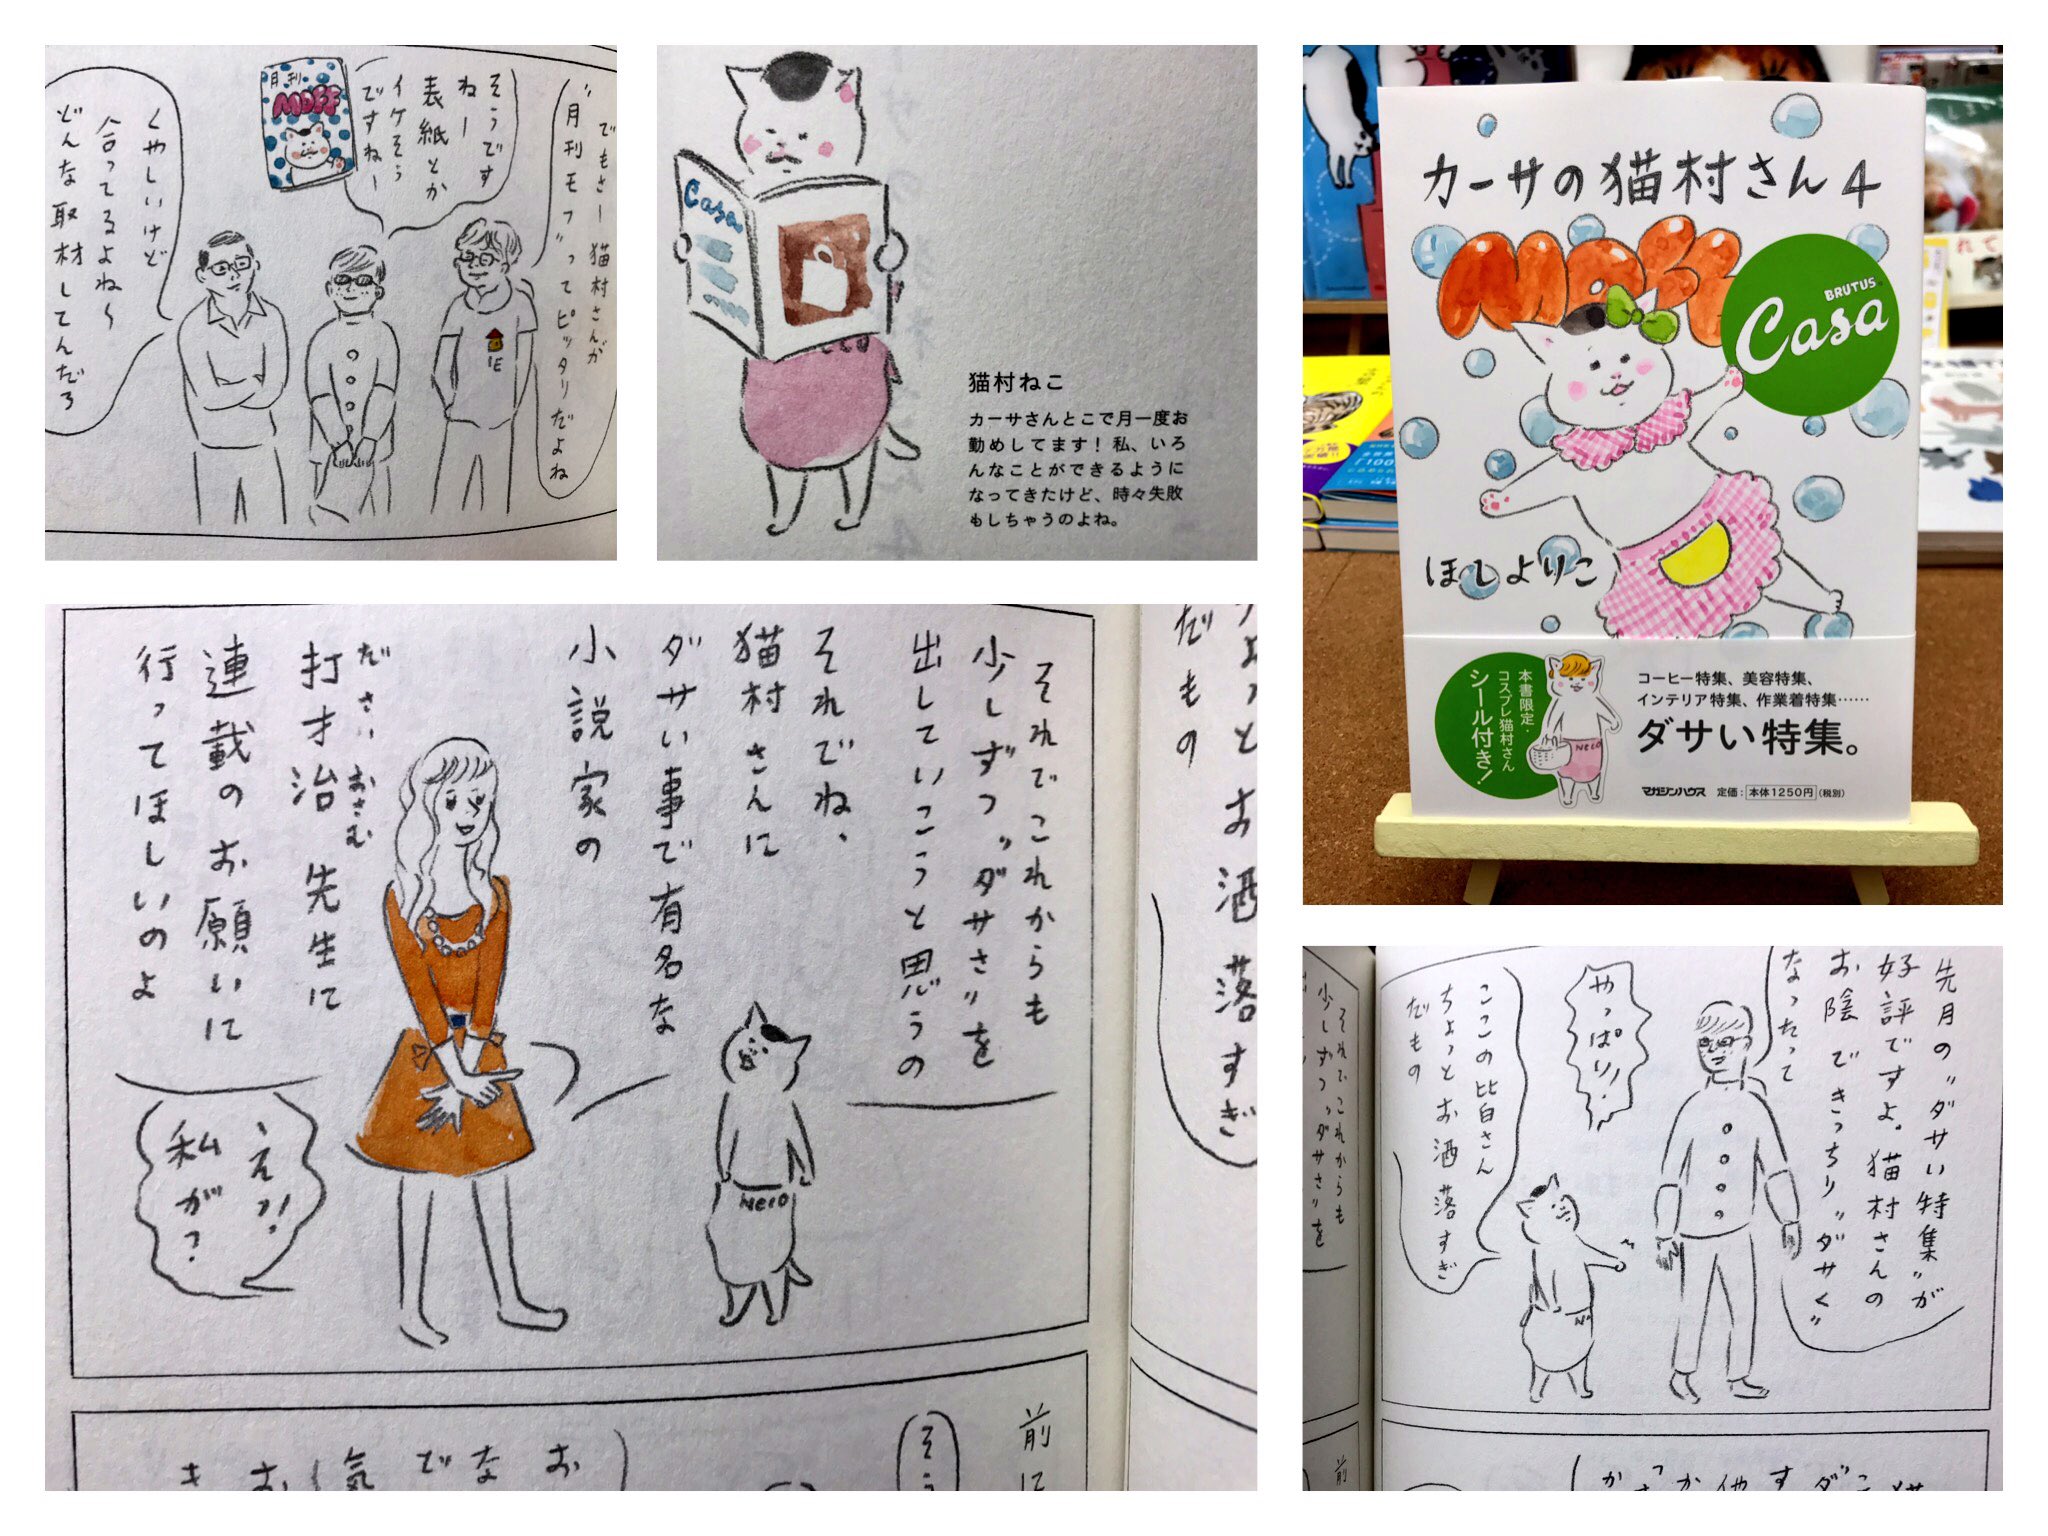 でもさー猫村さんが
"月刊モフ"ってピッタリだよね
そうです
ねー
表紙とか
イケそう
ですねー
月刊
MOFF
くやしいけど
合ってるよね〜
どんな取材してんだろ
IE
Casa
猫村ねこ
カーサさんとこで月一度お
勤めしてます！私、いろ
んなことができるように
なってきたけど、時々失敗
もしちゃうのよね。
カーサの猫村さん4
MOFF
BRUTUS
Casa
ほしよりこ
本書限定・
コスプレ猫村さん
シール付き！
NECO
コーヒー特集、美容特集、
インテリア特集、作業着特集……
ダサい特集。
マガジンハウス 定価：本体1250円（税別）
それでこれからも
少しずつ"ダサさ"を
出していこうと思うの
それでね、
猫村さんに
ダサい事で有名な
小説家の
ださい おさむ
打才治先生に
連載のお願いに
行ってほしいのよ
えっ！
私が？
Neco
ちょっとお酒落すぎ
だもの
前に
そう
お
な
で
気
お
き
先月の"ダサい特集"が
好評ですよ。猫村さんの
お陰できっちり"ダサく"
なったって
やっぱり！
ここの皆さん
ちょっとお酒落すぎ
だもの
N
それでこれからも
少しずつ"ダサさ"を
前